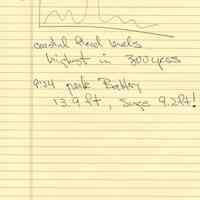 coastal flood levels
highest in 300 years
9:24 peak Battery
13.9 ft, Surge 9.2 ft!